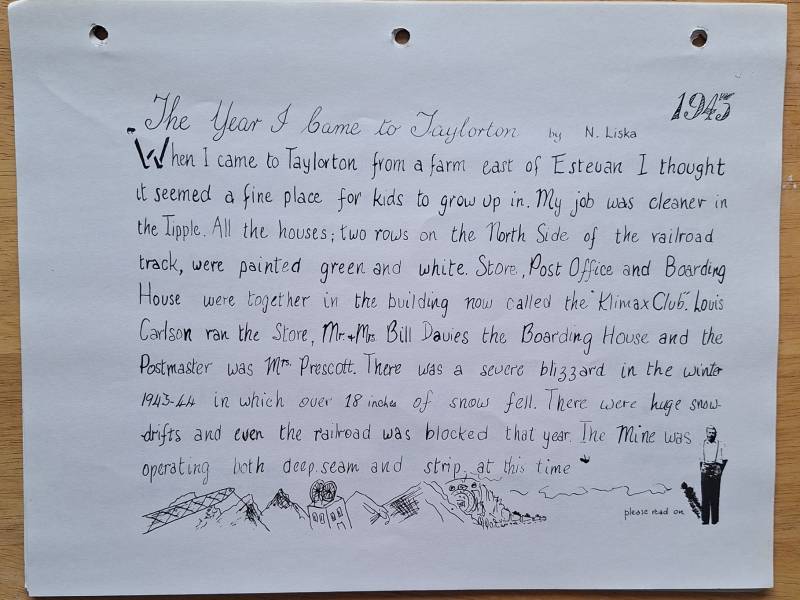 1943
The Year I Came to Taylorton by N. Liska
When I came to Taylorton from a farm east of Estevan I thought
it seemed a fine place for kids to grow up in. My job was cleaner in
the Tipple. All the houses; two rows on the North Side of the railroad
track, were painted green and white. Store, Post Office and Boarding
House were together in the building now called the "Klimax Club". Louis
Carlson ran the Store, Mr. + Mrs. Bill Davies the Boarding House and the
Postmaster was Mrs. Prescott. There was a severe blizzard in the winter
1943-44 in which over 18 inches of snow fell. There were huge snow-
drifts and even the railroad was blocked that year. The Mine was
operating both deep seam and strip at this time
please read on